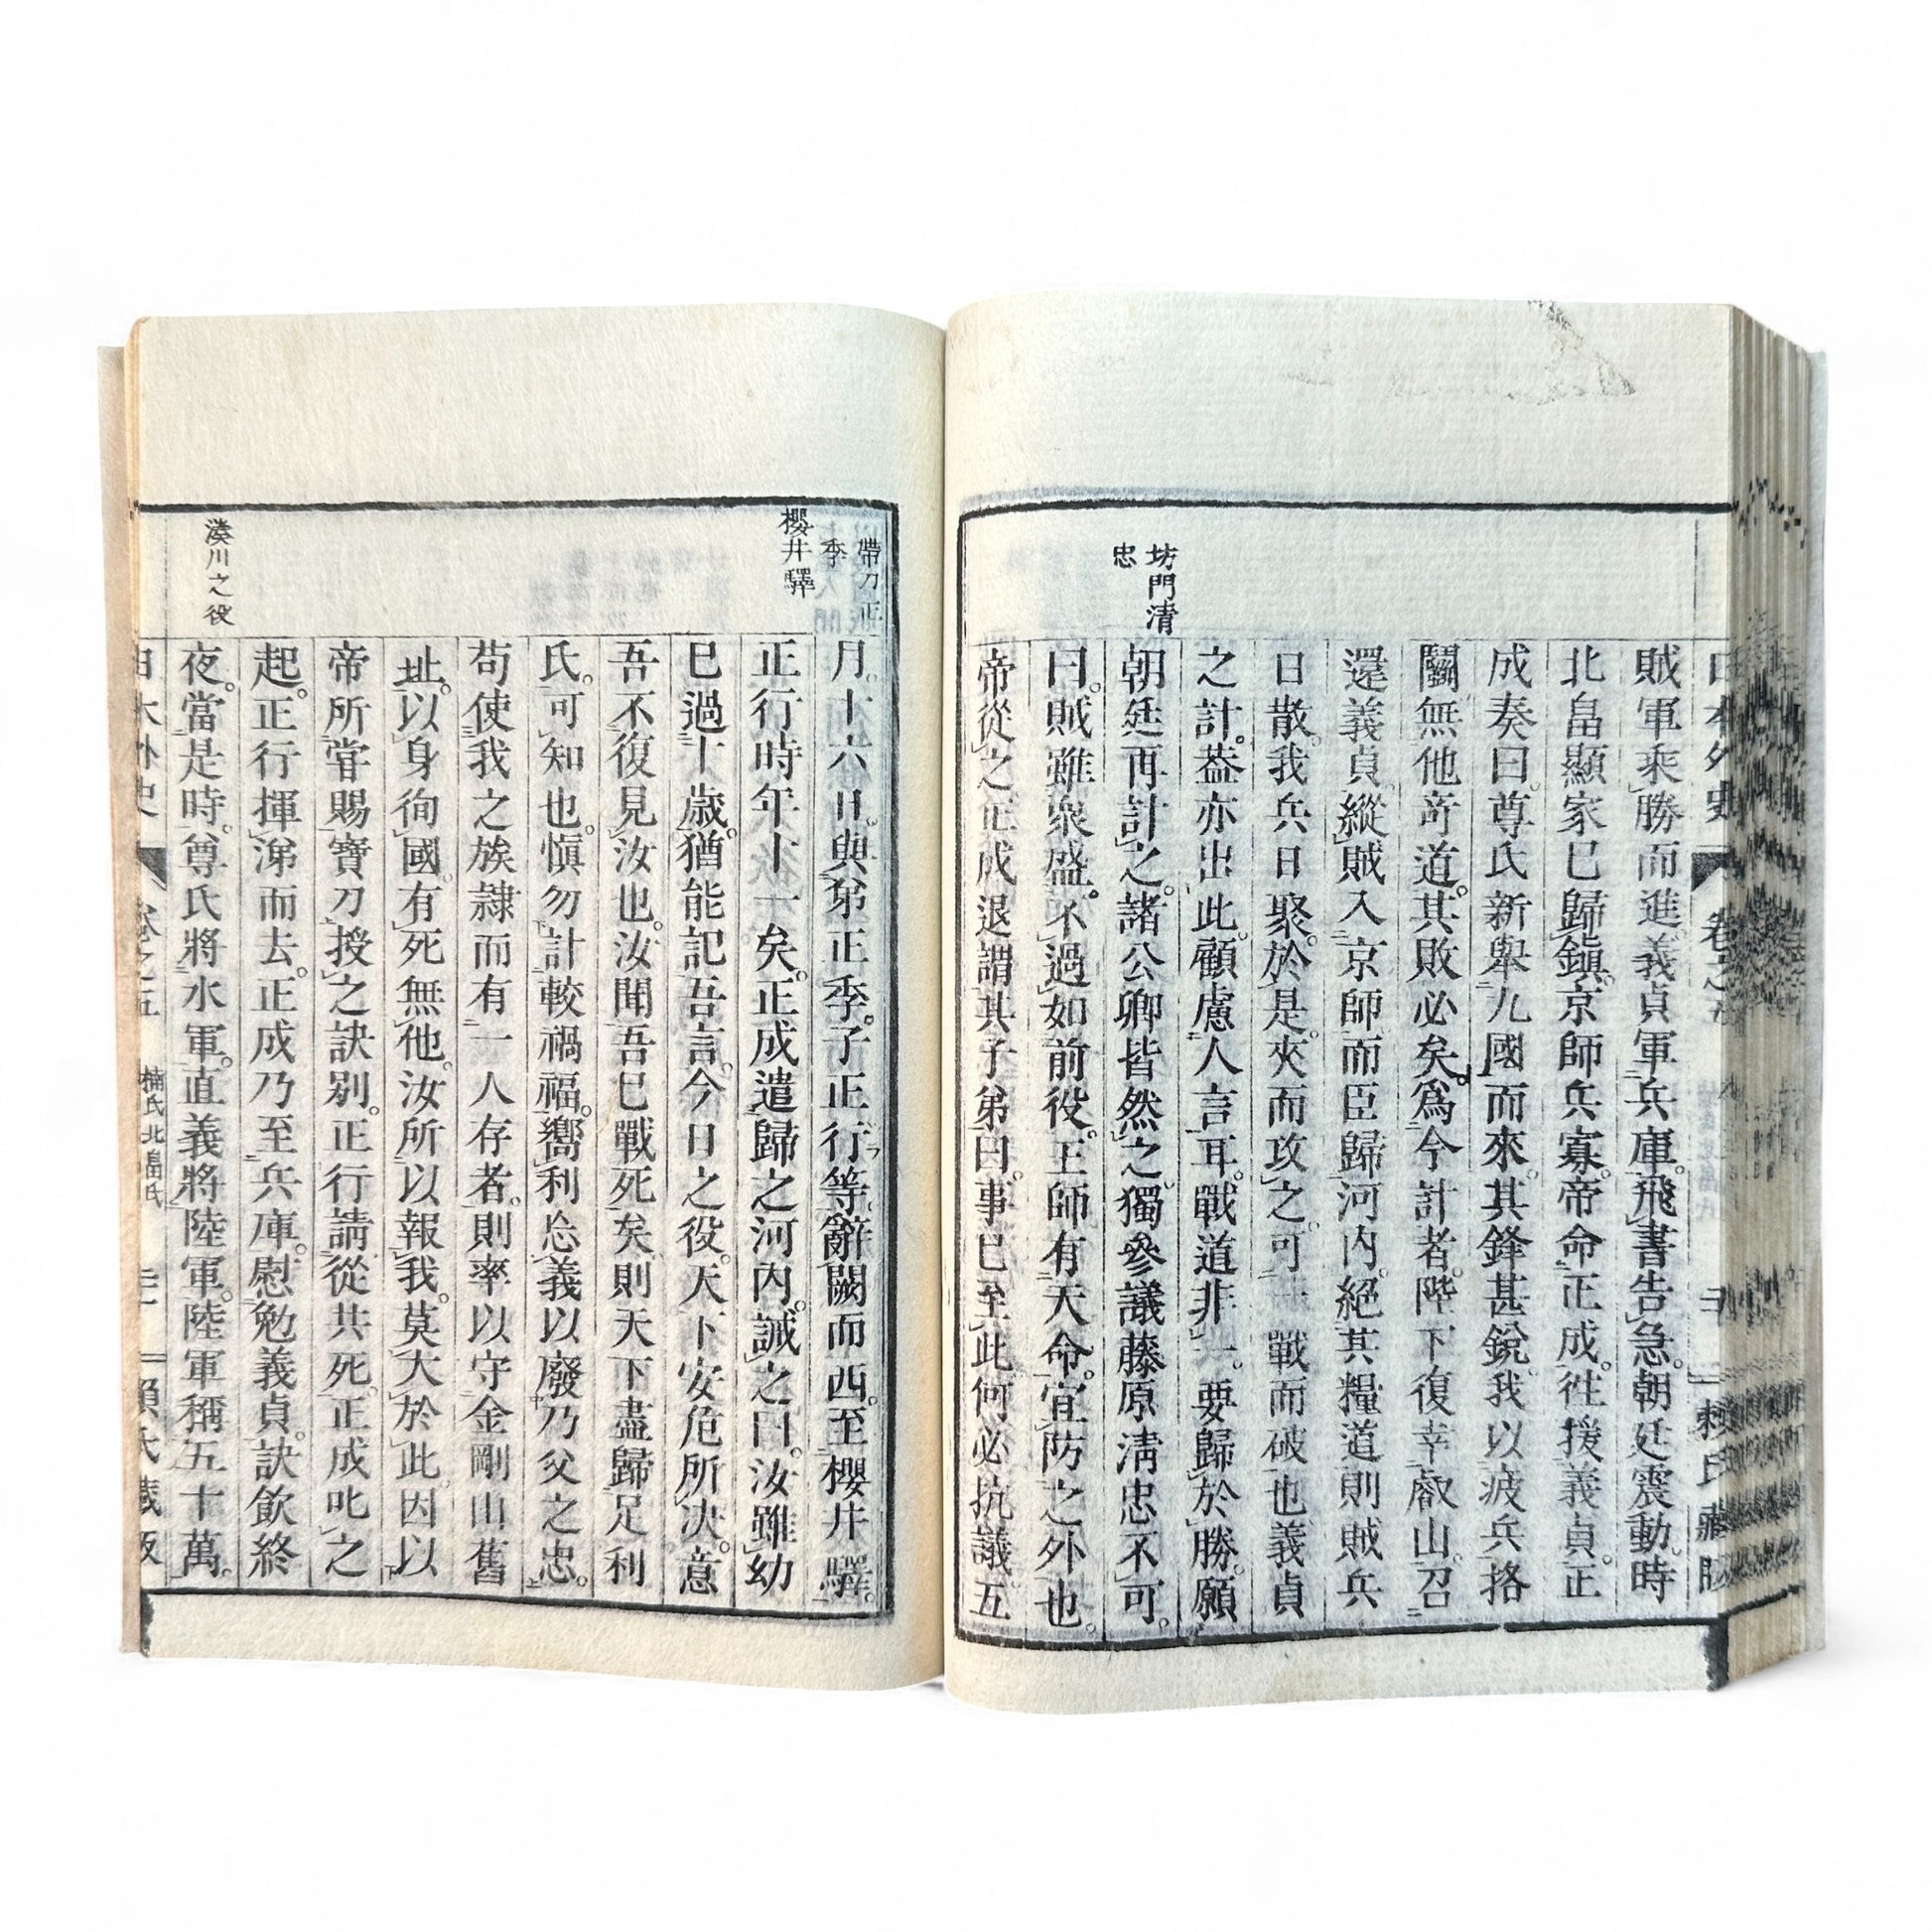 日本外史
卷之五
賴氏藏版
坊門清
忠
賊軍乘勝而進義貞軍兵庫。飛書告急。朝廷震動。時
北畠顯家已歸鎭。京師兵寡。帝命正成。徃援義貞。正
成奏曰。尊氏新舉九國而來。其鋒甚銳。我以疲兵挌
鬭無他竒道。其敗必矣。爲今計者。陛下復幸叡山。召
還義貞。縱賊入京師。而臣歸河内。絕其糧道。則賊兵
日散。我兵日聚。於是。夾而攻之。可一戰而破也。義貞
之計。葢亦出此。顧慮人言耳。戰道非一。要歸於勝。願
朝廷再計之。諸公卿皆然之。獨參議藤原清忠不可。
曰。賊雖衆盛。不過如前役。王師有天命。宜防之外也。
帝從之。正成退謂其子弟曰。事已至此。何必抗議。五
帶刀正
季
櫻井驛
湊川之役
月十六日。與弟正季。子正行等。辭闕而西。至櫻井驛。
正行時年十一矣。正成遣歸之河内。誡之曰。汝雖幼
已過十歲。猶能記吾言。今日之役。天下安危所決。意
吾不復見汝也。汝聞吾已戰死矣。則天下盡歸足利
氏。可知也。愼勿計較禍福。嚮利忘義。以廢乃父之忠。
苟使我之族隷而有一人存者。則率以守金剛山舊
址。以身徇國。有死無他。汝所以報我。莫大於此。因以
帝所嘗賜寶刀授之訣別。正行請從共死。正成叱之
起。正行揮涕而去。正成乃至兵庫。慰勉義貞。訣飲終
夜。當是時。尊氏將水軍。直義將陸軍。陸軍稱五十萬。
日本外史
卷之五
楠氏北畠氏
賴氏藏版